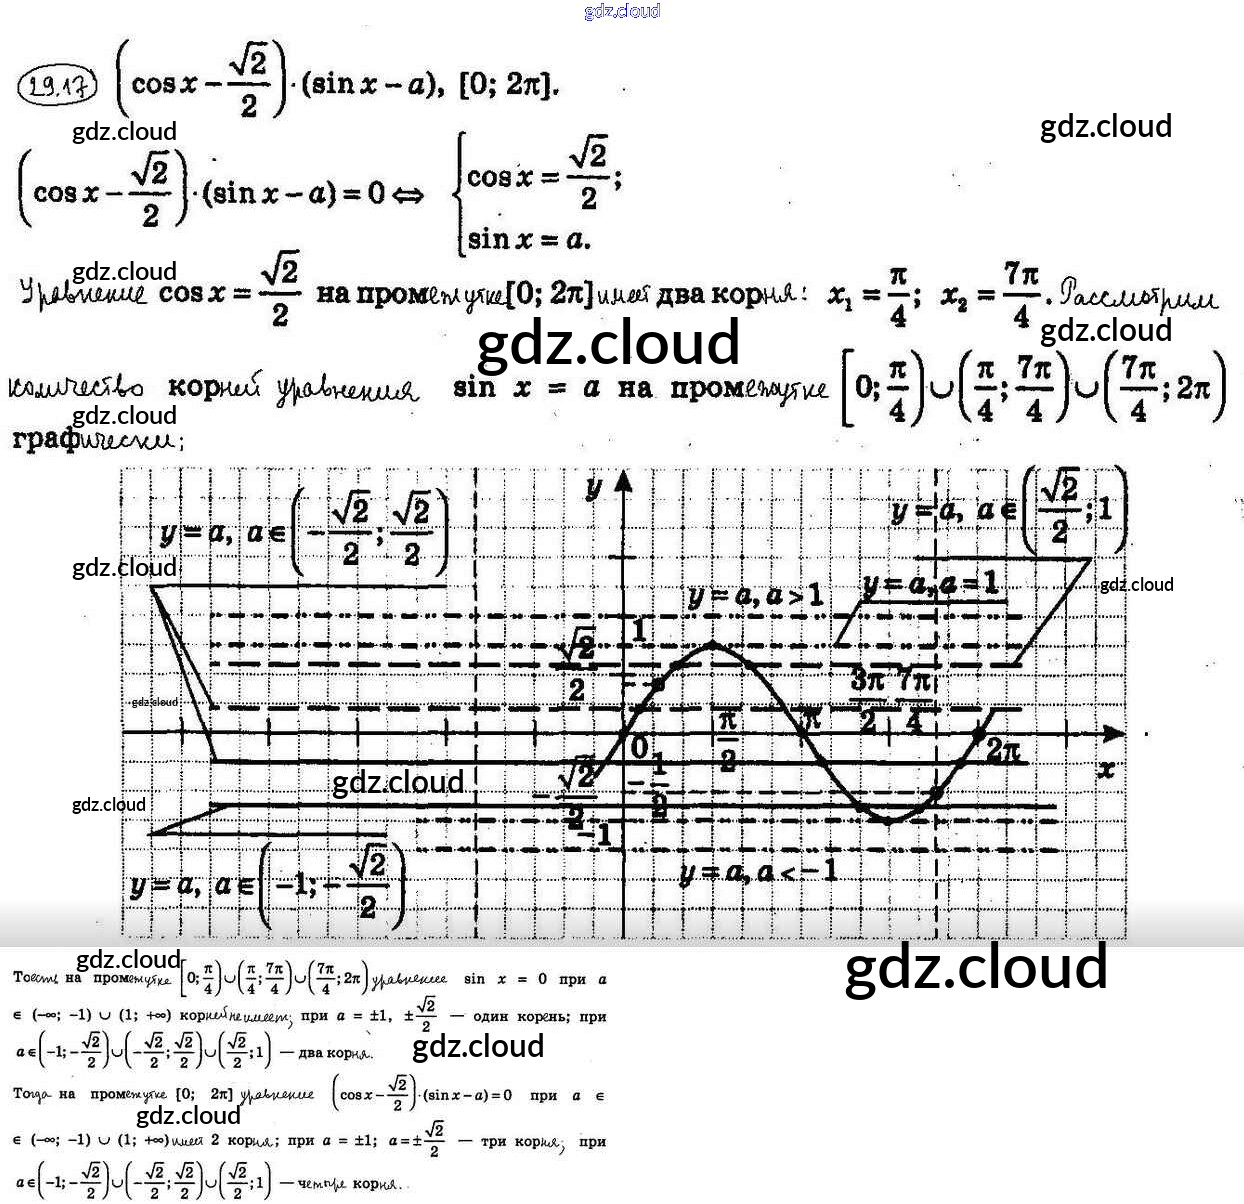 gdz.cloud
29.17 (cos x − √2/2) · (sin x − a), [0; 2π].
gdz.cloud gdz.cloud
(cos x − √2/2) · (sin x − a) = 0 ⇔ { cos x = √2/2; sin x = a.
gdz.cloud
Уравнение cos x = √2/2 на промежутке [0; 2π] имеет два корня: x₁ = π/4; x₂ = 7π/4. Рассмотрим
gdz.cloud gdz.cloud
количество корней уравнения sin x = a на промежутке [0; π/4) ∪ (π/4; 7π/4) ∪ (7π/4; 2π)
gdz.cloud
графически:
y = a, a ∈ (−√2/2; √2/2) y y = a, a ∈ (√2/2; 1)
gdz.cloud gdz.cloud
y = a, a > 1 y = a, a = 1
√2/2 1
gdz.cloud
0 π/2 π 3π/2 7π/4 2π x
−√2/2 −1/2
gdz.cloud gdz.cloud
−1
y = a, a ∈ (−1; −√2/2) y = a, a < −1
gdz.cloud gdz.cloud
То есть, на промежутке [0; π/4) ∪ (π/4; 7π/4) ∪ (7π/4; 2π) уравнение sin x = 0 при a
∈ (−∞; −1) ∪ (1; +∞) корней не имеет; при a = ±1, ±√2/2 — один корень; при
a ∈ (−1; −√2/2) ∪ (−√2/2; √2/2) ∪ (√2/2; 1) — два корня.
gdz.cloud
Тогда на промежутке [0; 2π] уравнение (cos x − √2/2) · (sin x − a) = 0 при a ∈
gdz.cloud
∈ (−∞; −1) ∪ (1; +∞) имеет 2 корня; при a = ±1; a = ±√2/2 — три корня; при
a ∈ (−1; −√2/2) ∪ (−√2/2; √2/2) ∪ (√2/2; 1) — четыре корня.